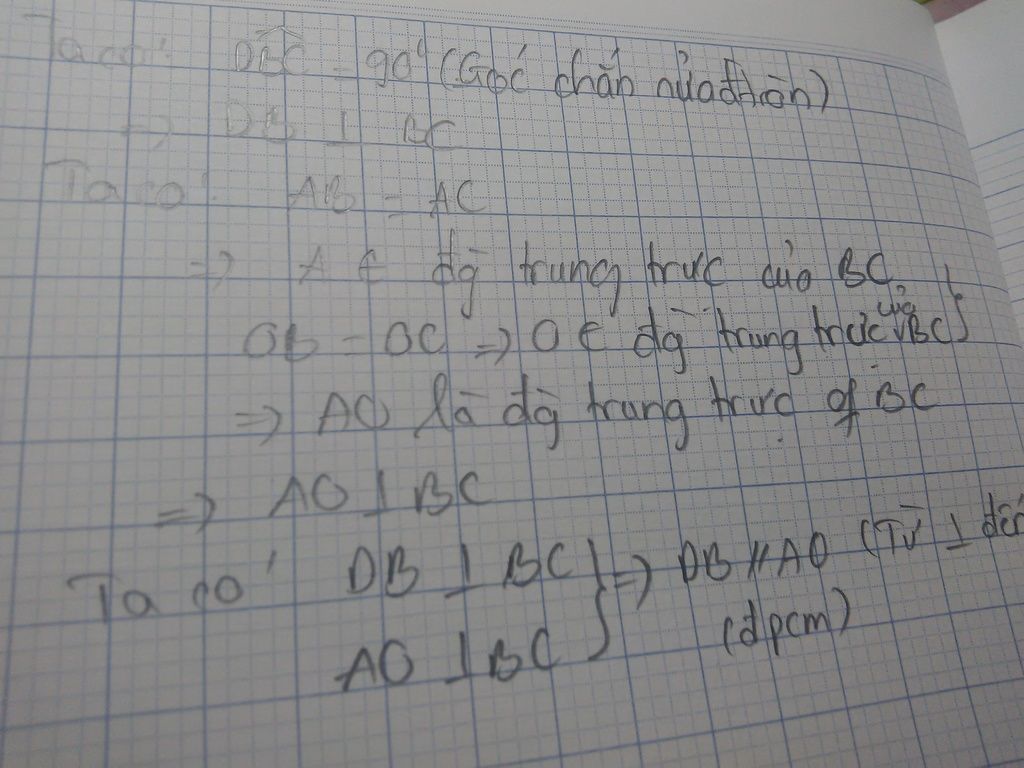 Ta có: DBC = 90° (Góc chắn nửa đtròn)
=> DB ⊥ BC
Ta có: AB = AC
=> A ∈ đg trung trực của BC
OB = OC => O ∈ đg trung trực của BC }
=> AO là đg trung trực of BC
=> AO ⊥ BC
Ta có DB ⊥ BC } => DB // AO (Từ ⊥ đến
AO ⊥ BC (đpcm)